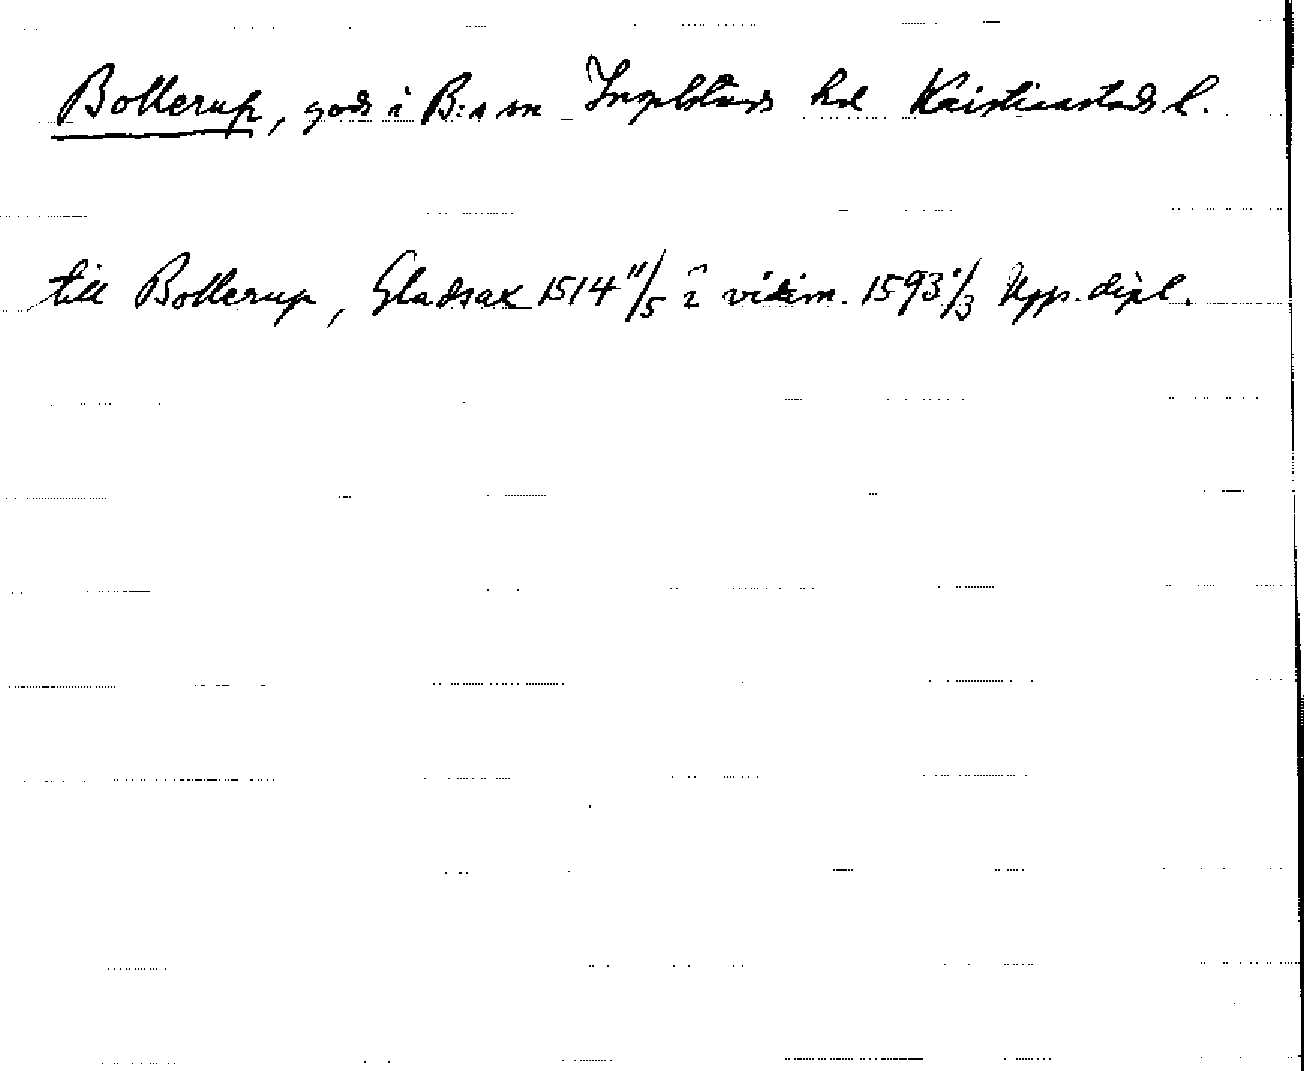 Bollerup, gods i B:s sn Ingelstads hd Kristianstads l.
till Bollerup, Gladsax 1514 11/5 i vidim. 1593 1/3 Upps. dipl.